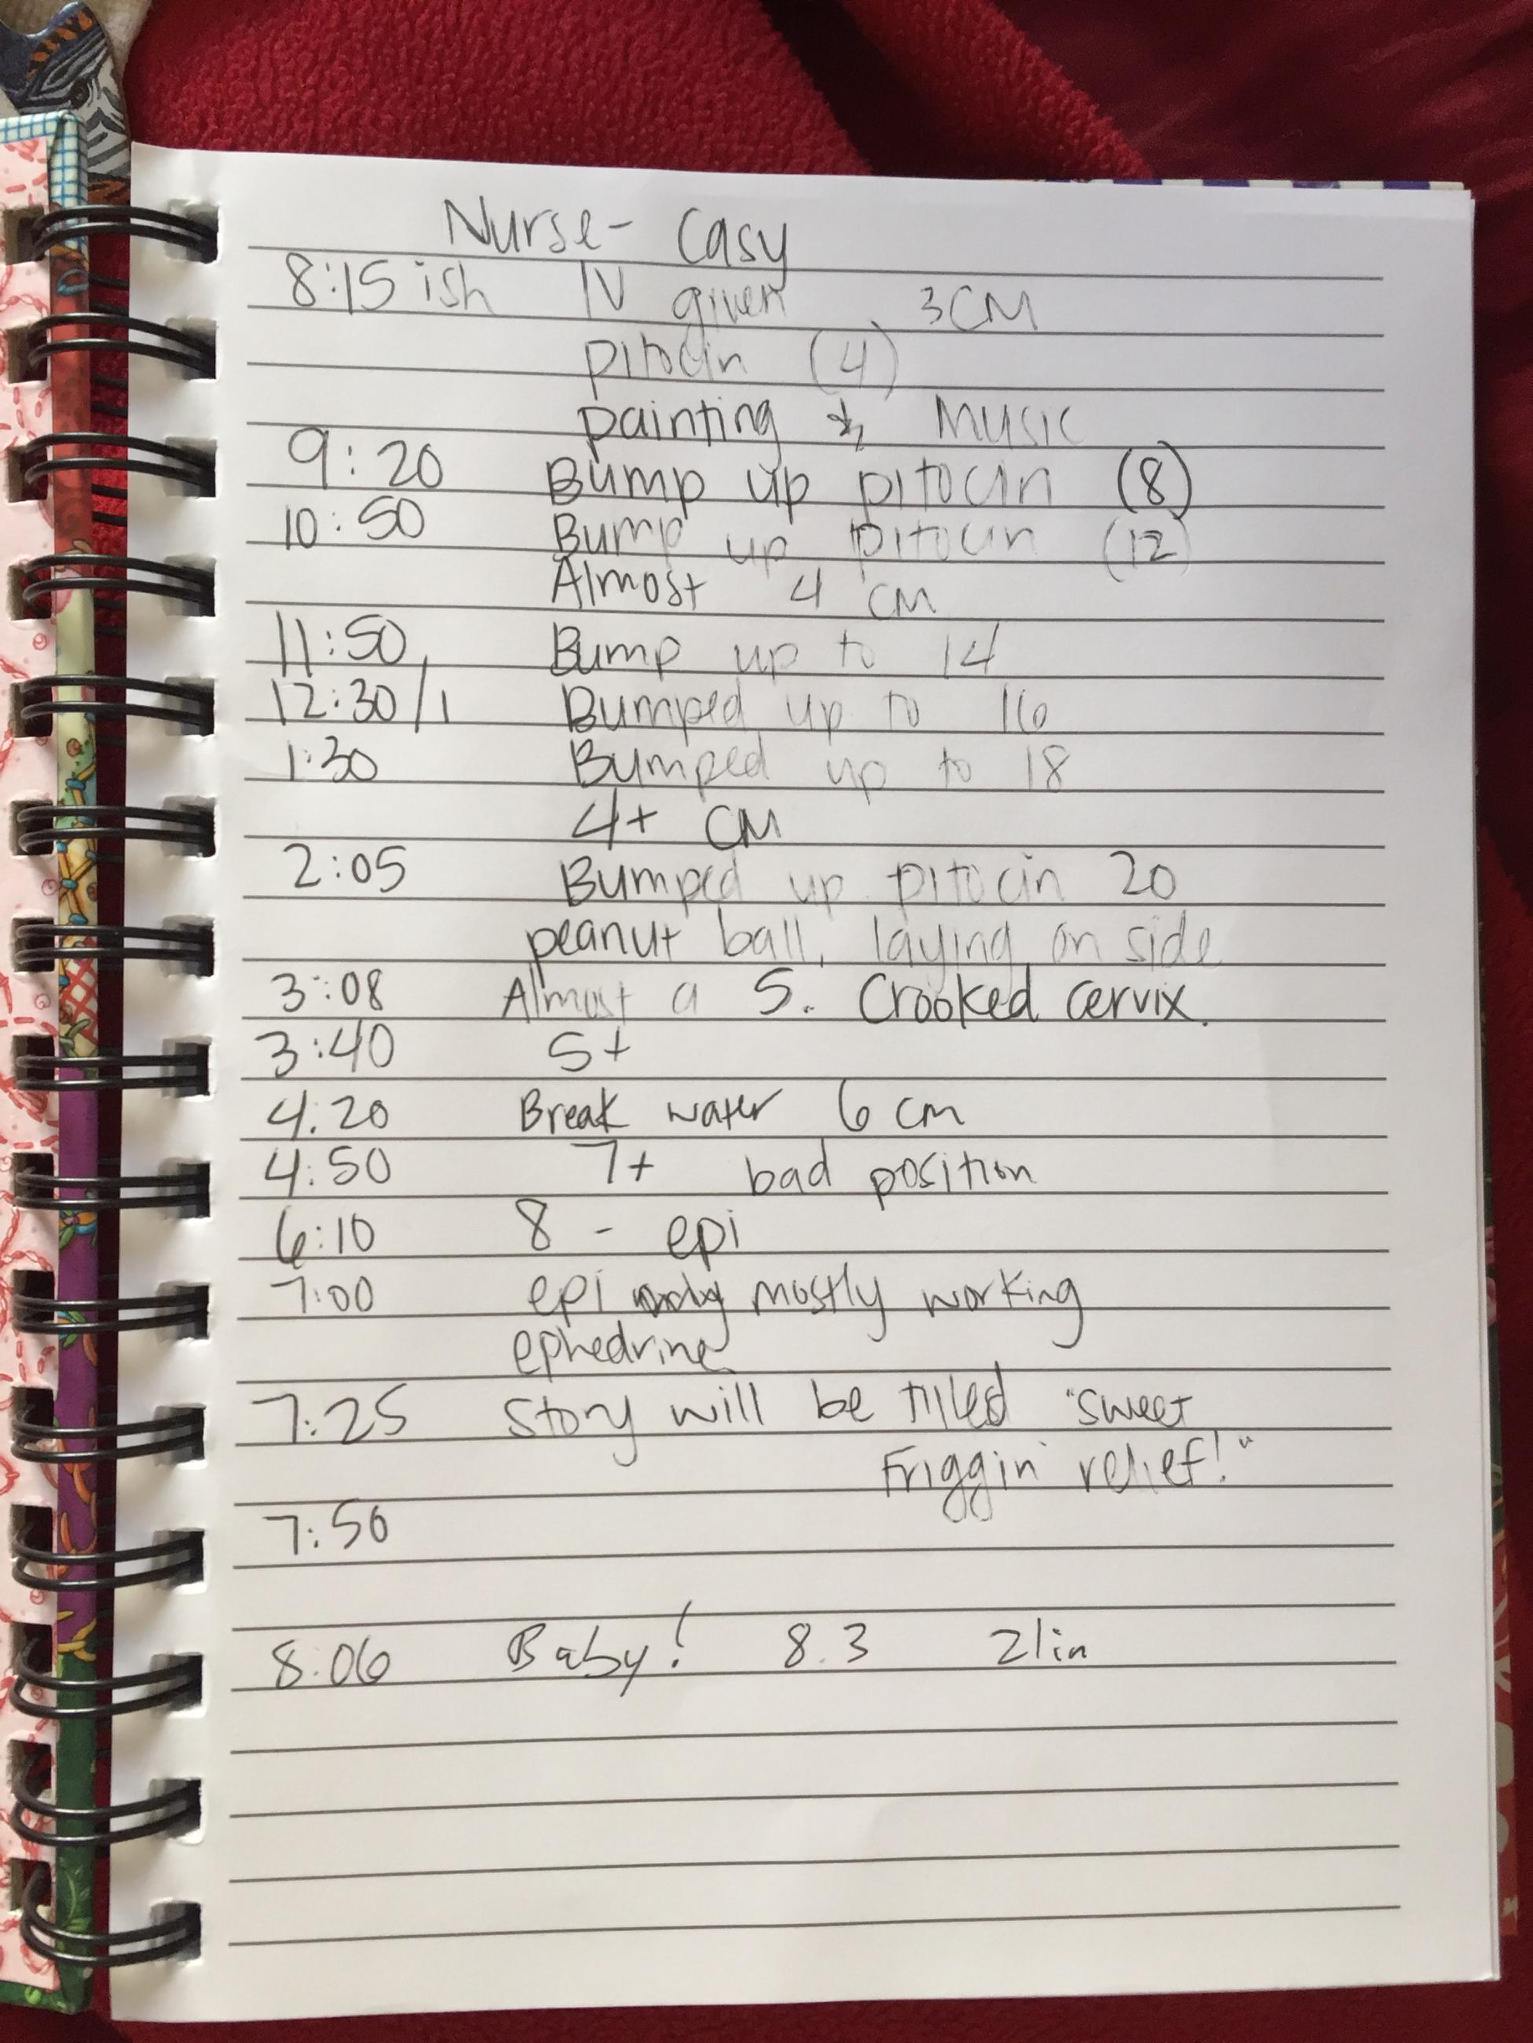 Nurse- Casy
8:15 ish IV given 3CM
pitocin (4)
painting & Music
9:20 Bump up pitocin (8)
10:50 Bump up pitocin (12)
Almost 4 CM
11:50 Bump up to 14
12:30/1 Bumped up to 16
1:30 Bumped up to 18
4+ CM
2:05 Bumped up pitocin 20
peanut ball, laying on side
3:08 Almost a 5. Crooked cervix.
3:40 5+
4:20 Break water 6 cm
4:50 7+ bad position
6:10 8 - epi
7:00 epi mostly working
ephedrine
7:25 Story will be titled "Sweet
Friggin relief!"
7:50
8:06 Baby! 8.3 21in